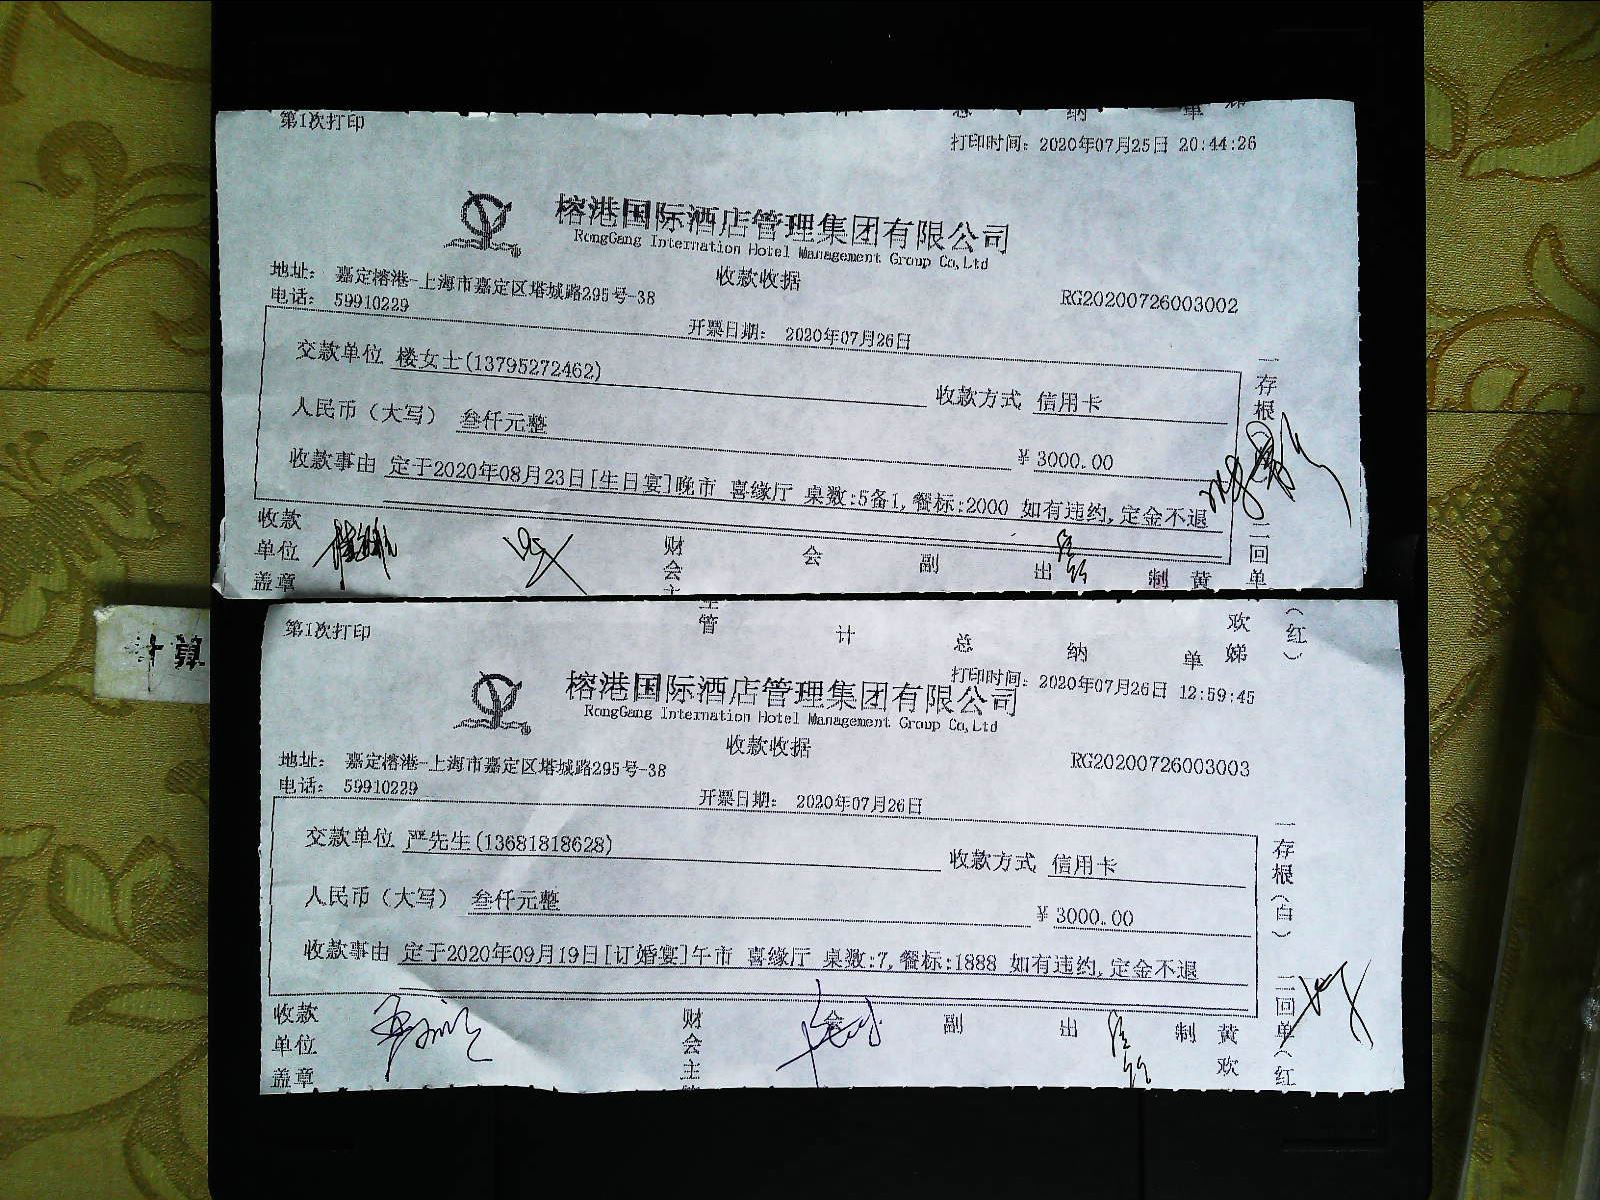 第1次打印
总 纳 单
打印时间：2020年07月25日 20:44:26
榕港国际酒店管理集团有限公司
RongGang Internation Hotel Management Group Co,Ltd
收款收据
地址： 嘉定榕港-上海市嘉定区塔城路295号-38
RG20200726003002
电话： 59910229
开票日期： 2020年07月26日
交款单位 楼女士(13795272462)
收款方式 信用卡
人民币（大写） 叁仟元整
￥3000.00
收款事由 定于2020年08月23日[生日宴]晚市 喜缘厅 桌数:5备1,餐标:2000 如有违约,定金不退
一存根
二回单
收款单位盖章
财会主
会
副
出
制
黄
计算
第1次打印
管
计
总
纳
单
欢娣
（红）
打印时间：2020年07月26日 12:59:45
榕港国际酒店管理集团有限公司
RongGang Internation Hotel Management Group Co,Ltd
收款收据
地址： 嘉定榕港-上海市嘉定区塔城路295号-38
RG20200726003003
电话： 59910229
开票日期： 2020年07月26日
交款单位 严先生(13681818628)
收款方式 信用卡
人民币（大写） 叁仟元整
￥3000.00
收款事由 定于2020年09月19日[订婚宴]午市 喜缘厅 桌数:7,餐标:1888 如有违约,定金不退
一存根（白）
二回单（红
收款单位盖章
财会主
会
副
出
制
黄欢